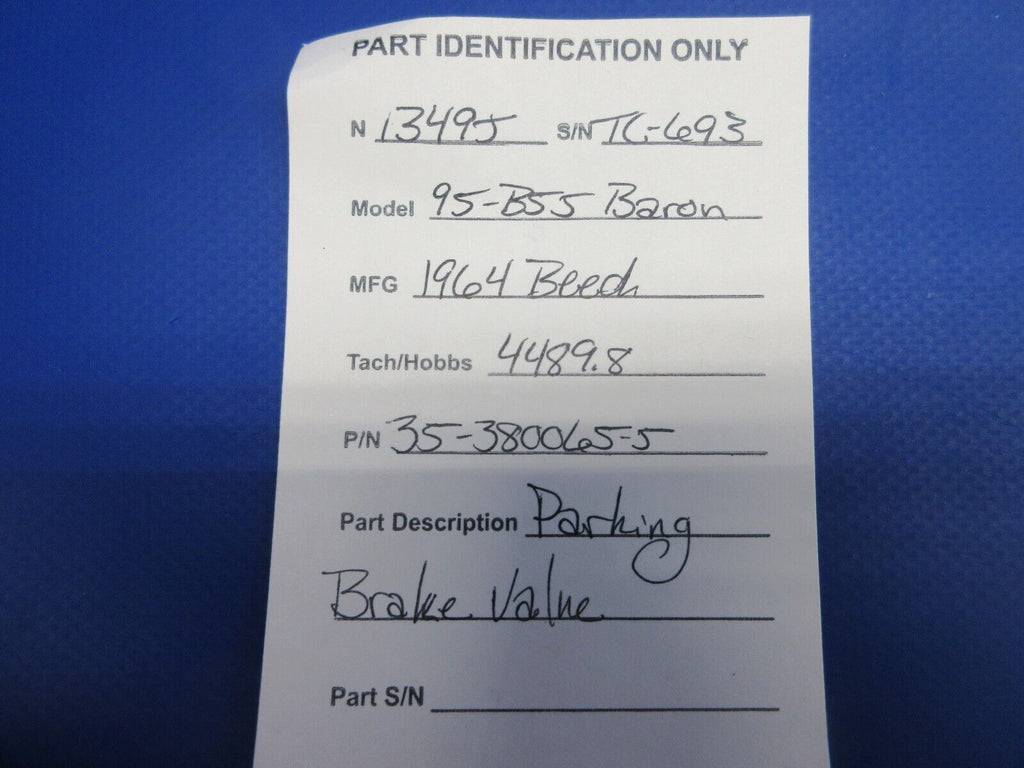 PART IDENTIFICATION ONLY
N 1349J S/N TC-693
Model 95-B55 Baron
MFG 1964 Beech
Tach/Hobbs 4489.8
P/N 35-380065-5
Part Description Parking
Brake Valve
Part S/N